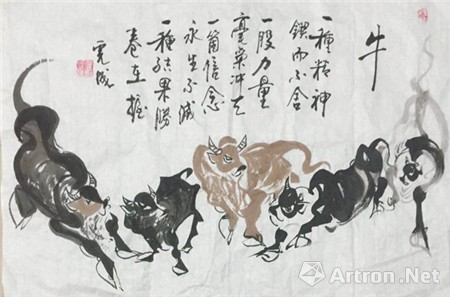 牛
一種精神
鍥而不舍
一股力量
毫案冲天
一箇信念
永生不滅
一種结果勝
卷在握
Artron.Net